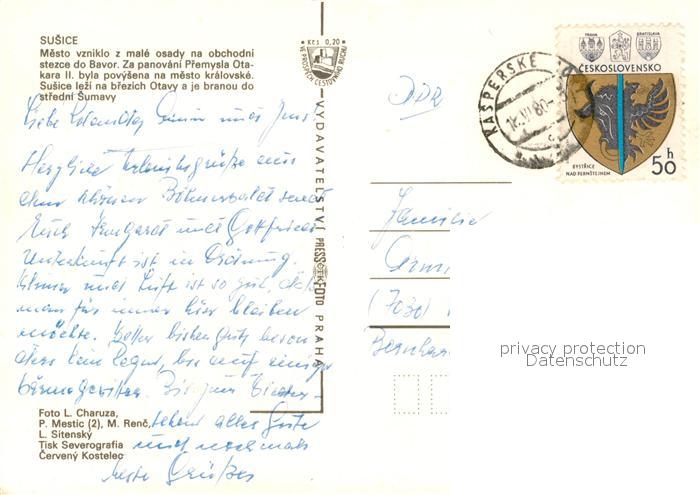 SUŠICE
Město vzniklo z malé osady na obchodní
stezce do Bavor. Za panování Přemysla Ota-
kara II. byla povýšena na město královské.
Sušice leží na březích Otavy a je branou do
střední Šumavy
Kčs 0,20
VE PROSPĚCH CESTOVNÍHO RUCHU
VYDAVATELSTVÍ PRESSFOTO PRAHA
Liebe und Jens.
Herzliche Urlaubsgrüße aus
dem schönen Böhmerwald sendet
Euch Irmgard und Gottfried
Unterkunft ist in Ordnung.
Klima und Luft ist so gut, daß
man für immer hier bleiben
möchte. Wetter bisher gut
kein Regen, bis auf einige
Bis zum Wieder-
sehen alles Gute
und nochmals
beste Grüße
Foto L. Charuza,
P. Mestic (2), M. Renč,
L. Sitenský
Tisk Severografia
Červený Kostelec
DDR
KAŠPERSKÉ
PRAHA
BRATISLAVA
ČESKOSLOVENSKO
BYSTŘICE
NAD PERNŠTEJNEM
50 h
Familie
Bernhar
privacy protection
Datenschutz